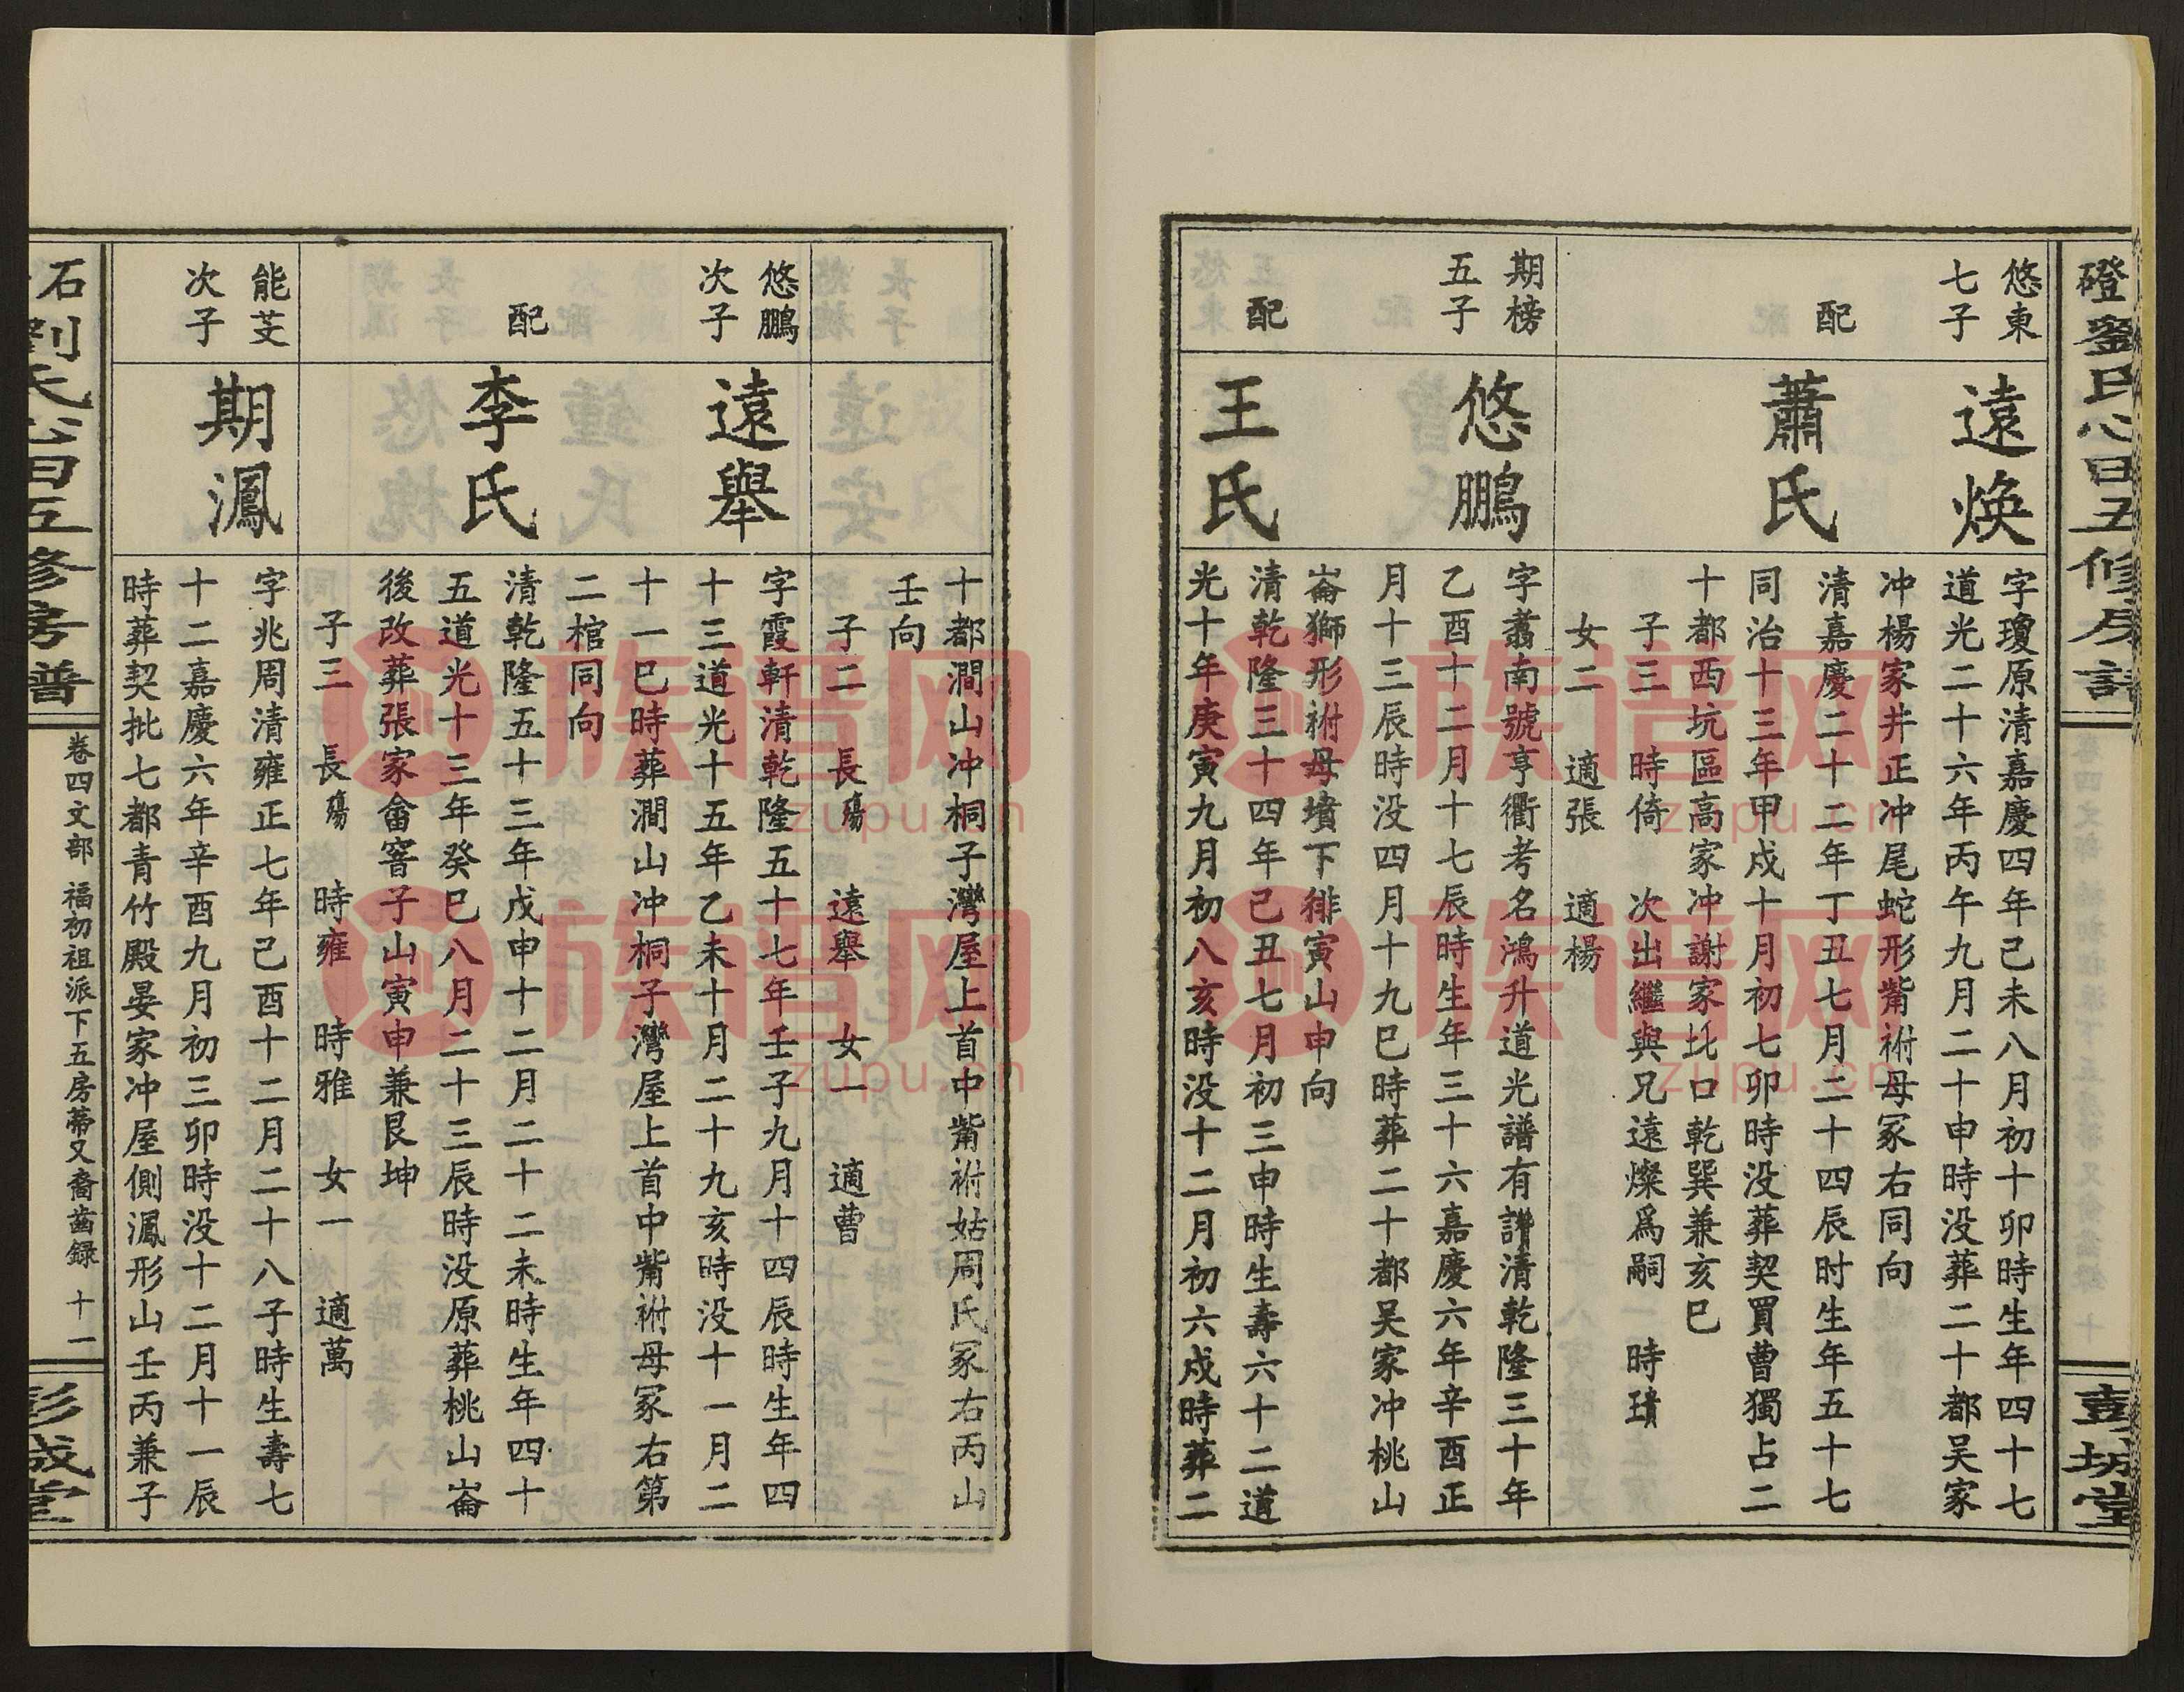 磴劉氏公田五修房譜
彭城堂
悠東
七子
遠煥
字瓊原清嘉慶四年己未八月初十卯時生年四十七
道光二十六年丙午九月二十申時没葬二十都吴家
冲楊家井正冲尾蛇形觜祔母冢右同向
配
蕭氏
清嘉慶二十二年丁丑七月二十四辰时生年五十七
同治十三年甲戍十月初七卯時没葬契買曹獨占二
十都西坑區高家冲謝家圠口乾巽兼亥巳
子三 時倚 次出繼與兄遠燦爲嗣 時璝
女二 適張 適楊
期榜
五子
悠鵬
字翥南號亨衢考名鴻升道光譜有讚清乾隆三十年
乙酉十二月十七辰時生年三十六嘉慶六年辛酉正
月十三辰時没四月十九巳時葬二十都吴家冲桃山
崙獅形祔母墳下徘寅山申向
配
王氏
清乾隆三十四年己丑七月初三申時生壽六十二道
光十年庚寅九月初八亥時没十二月初六戍時葬二
十都澗山冲桐子灣屋上首中觜祔姑周氏冢右丙山
壬向
子二 長殤 遠舉 女一 適曹
悠鵬
次子
遠舉
字霞軒清乾隆五十七年壬子九月十四辰時生年四
十三道光十五年乙未十月二十九亥時没十一月二
十一巳時葬澗山冲桐子灣屋上首中觜祔母冢右第
二棺同向
配
李氏
清乾隆五十三年戊申十二月二十二未時生年四十
五道光十三年癸巳八月二十三辰時没原葬桃山崙
後改葬張家畲窖子山寅申兼艮坤
子三 長殤 時雍 時雅 女一 適萬
能芠
次子
期鳳
字兆周清雍正七年己酉十二月二十八子時生壽七
十二嘉慶六年辛酉九月初三卯時没十二月十一辰
時葬契批七都青竹殿晏家冲屋側鳳形山壬丙兼子
石劉氏公田五修房譜
卷四文部 福初祖派下五房蒂又裔齒録 十一
彭城堂
族谱网
zupu.cn
族谱网
zupu.cn
族谱网
zupu.cn
族谱网
zupu.cn